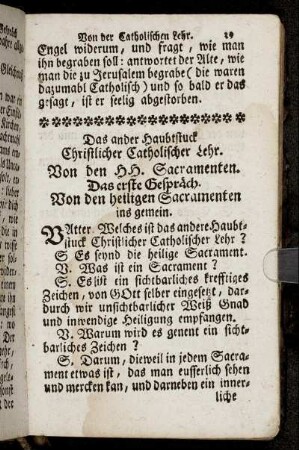 Von der Catholischen Lehr. 29
Engel widerum, und fragt, wie man
ihn begraben soll: antwortet der Alte, wie
man die zu Jerusalem begrabe (die waren
dazumahl Catholisch) und so bald er das
gesagt, ist er seelig abgestorben.
Das ander Haubtstuck
Christlicher Catholischer Lehr.
Von den HH. Sacramenten.
Das erste Gespräch.
Von den heiligen Sacramenten
ins gemein.
VAtter. Welches ist das andere Haubt-
stuck Christlicher Catholischer Lehr?
S Es seynd die heilige Sacrament.
V. Was ist ein Sacrament?
S. Es ist ein sichtbarliches krefftiges
Zeichen, von GOtt selber eingesetzt, dar-
durch wir unsichtbarlicher Weiß Gnad
und inwendige Heiligung empfangen.
V. Warum wird es genent ein sicht-
barliches Zeichen?
S. Darum, dieweil in jedem Sacra-
ment etwas ist, das man eusserlich sehen
und mercken kan, und darneben ein inner-
liche